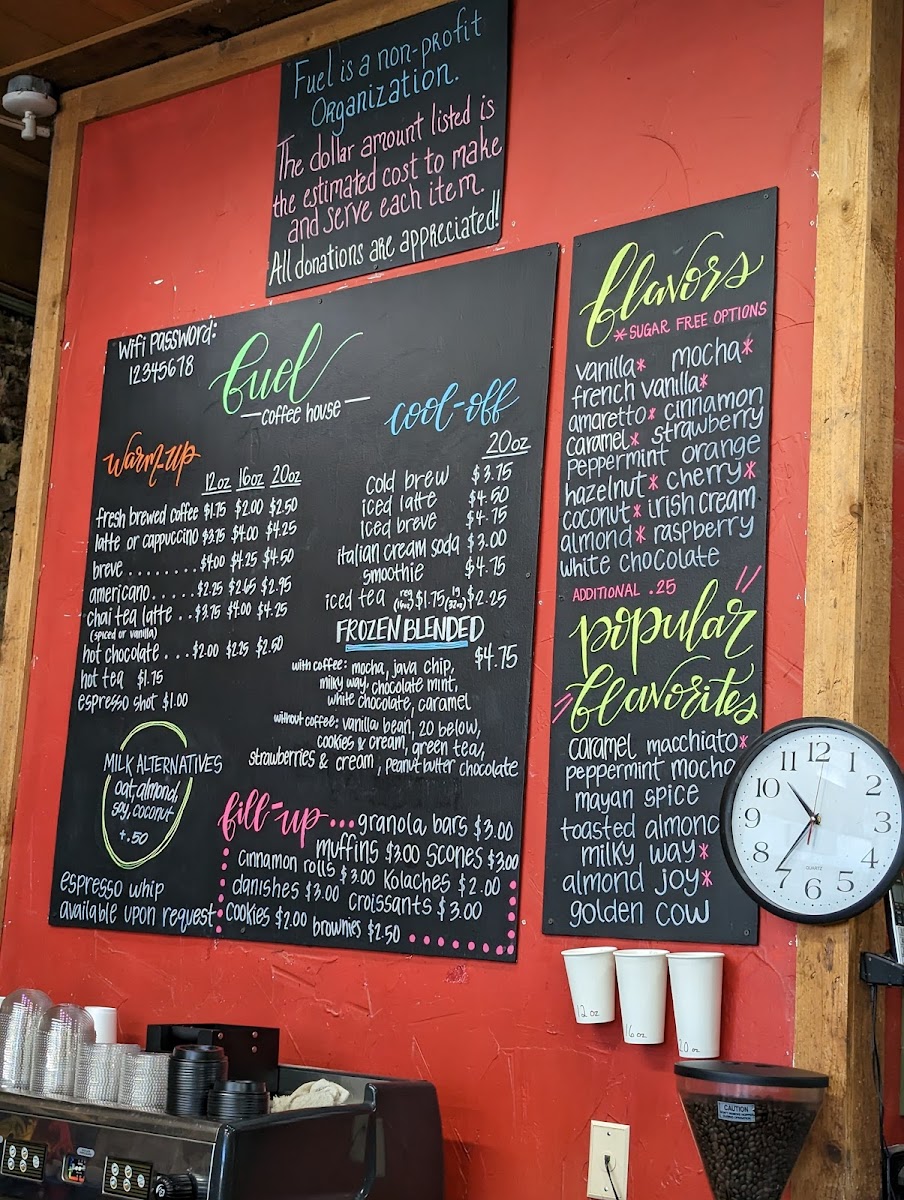 Fuel is a non-profit
Organization.
The dollar amount listed is
the estimated cost to make
and serve each item.
All donations are appreciated!!
Wifi Password:
12345678
fuel
coffee house
warm-up
12oz 16oz 20oz
fresh brewed coffee $1.75 $2.00 $2.50
latte or cappuccino $3.75 $4.00 $4.25
breve ........ $4.00 $4.25 $4.50
americano ..... $2.25 $2.65 $2.95
chai tea latte .. $3.75 $4.00 $4.25
(spiced or vanilla)
hot chocolate ... $2.00 $2.25 $2.50
hot tea $1.75
espresso shot $1.00
MILK ALTERNATIVES
oat, almond,
soy, coconut
+.50
espresso whip
available upon request
cool-off
20oz
cold brew $3.75
iced latte $4.50
iced breve $4.75
italian cream soda $3.00
smoothie $4.75
iced tea (reg 16oz) $1.75 (lg 32oz) $2.25
FROZEN BLENDED
$4.75
with coffee: mocha, java chip,
milky way, chocolate mint,
white chocolate, caramel
without coffee: vanilla bean, 20 below,
cookies & cream, green tea,
strawberries & cream, peanut butter chocolate
fill-up... granola bars $3.00
muffins $3.00 scones $3.00
cinnamon rolls $3.00 kolaches $2.00
danishes $3.00 croissants $3.00
cookies $2.00 brownies $2.50
flavors
*SUGAR FREE OPTIONS
vanilla* mocha*
french vanilla*
amaretto* cinnamon
caramel* strawberry
peppermint orange
hazelnut* cherry*
coconut* irish cream
almond* raspberry
white chocolate
ADDITIONAL .25
popular
flavorites
caramel macchiato*
peppermint mocha
mayan spice
toasted almond
milky way*
almond joy*
golden cow
12
1
2
3
4
5
6
7
8
9
10
11
QUARTZ
12 oz
16 oz
20 oz
CAUTION